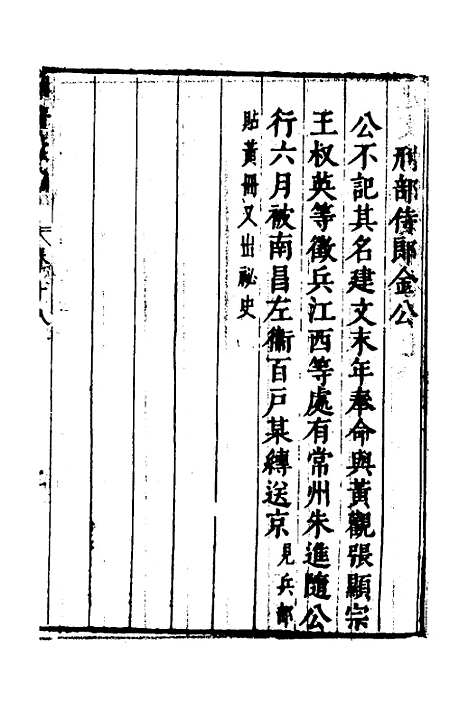 刑部侍郎金公
公不記其名建文末年奉命與黃觀張顯宗
王权英等徵兵江西等處有常州朱進隨公
行六月被南昌左衞百戶某縳送京見兵部
貼黃冊又出祕史
卷十八